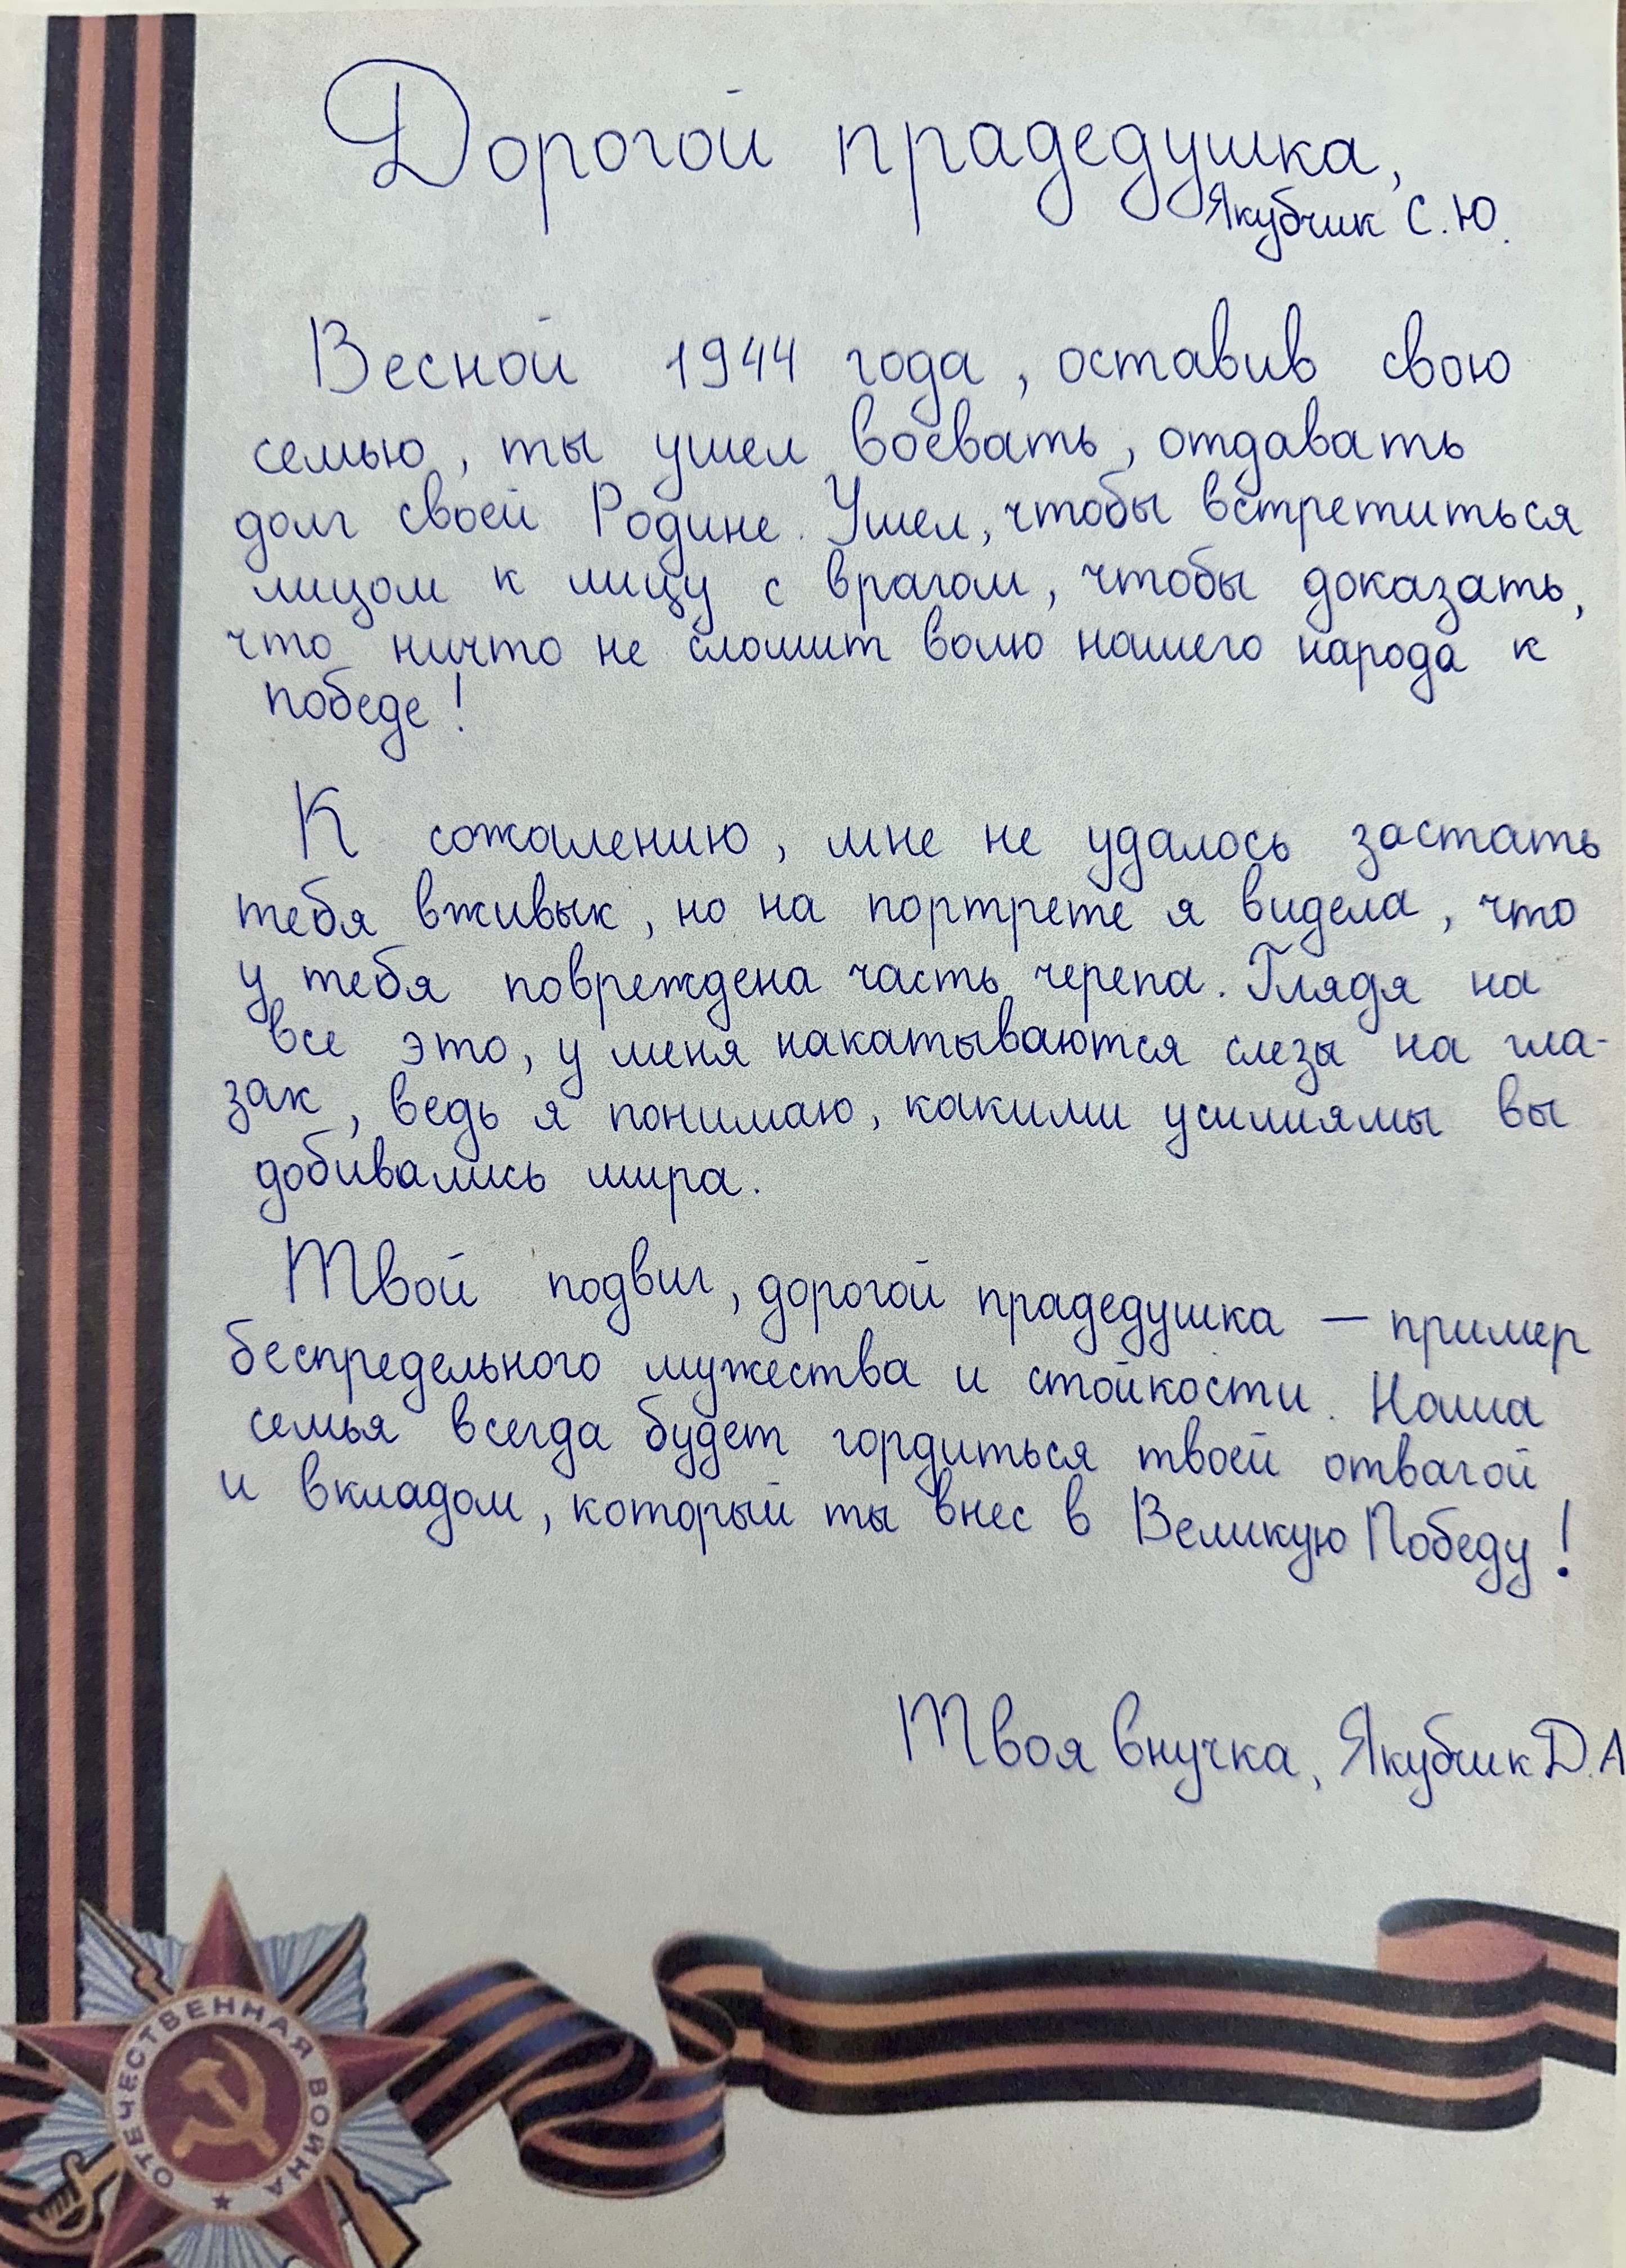 Дорогой прадедушка,
Якубчик С.Ю.
Весной 1944 года, оставив свою
семью, ты ушел воевать, отдавать
долг своей Родине. Ушел, чтобы встретиться
лицом к лицу с врагом, чтобы доказать,
что ничто не сломит волю нашего народа к
победе!
К сожалению, мне не удалось застать
тебя вживых, но на портрете я видела, что
у тебя повреждена часть черепа. Глядя на
все это, у меня накатываются слезы на гла-
зах, ведь я понимаю, какими усилиямы вы
добивались мира.
Твой подвиг, дорогой прадедушка – пример
беспредельного мужества и стойкости. Наша
семья всегда будет гордиться твоей отвагой
и вкладом, который ты внес в Великую Победу!
Твоя внучка, Якубчик Д.А
ОТЕЧЕСТВЕННАЯ ВОЙНА